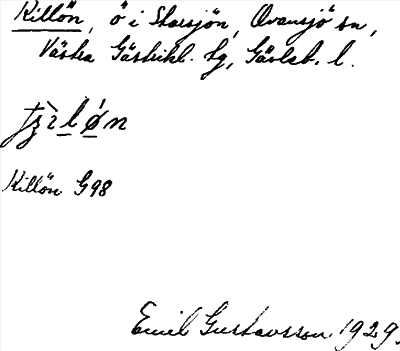 Killön, ö i Storsjön, Ovansjö sn,
Västra Gästrikl. tg, Gävleb. l.
Killön G98
Emil Gustavsson 1929.